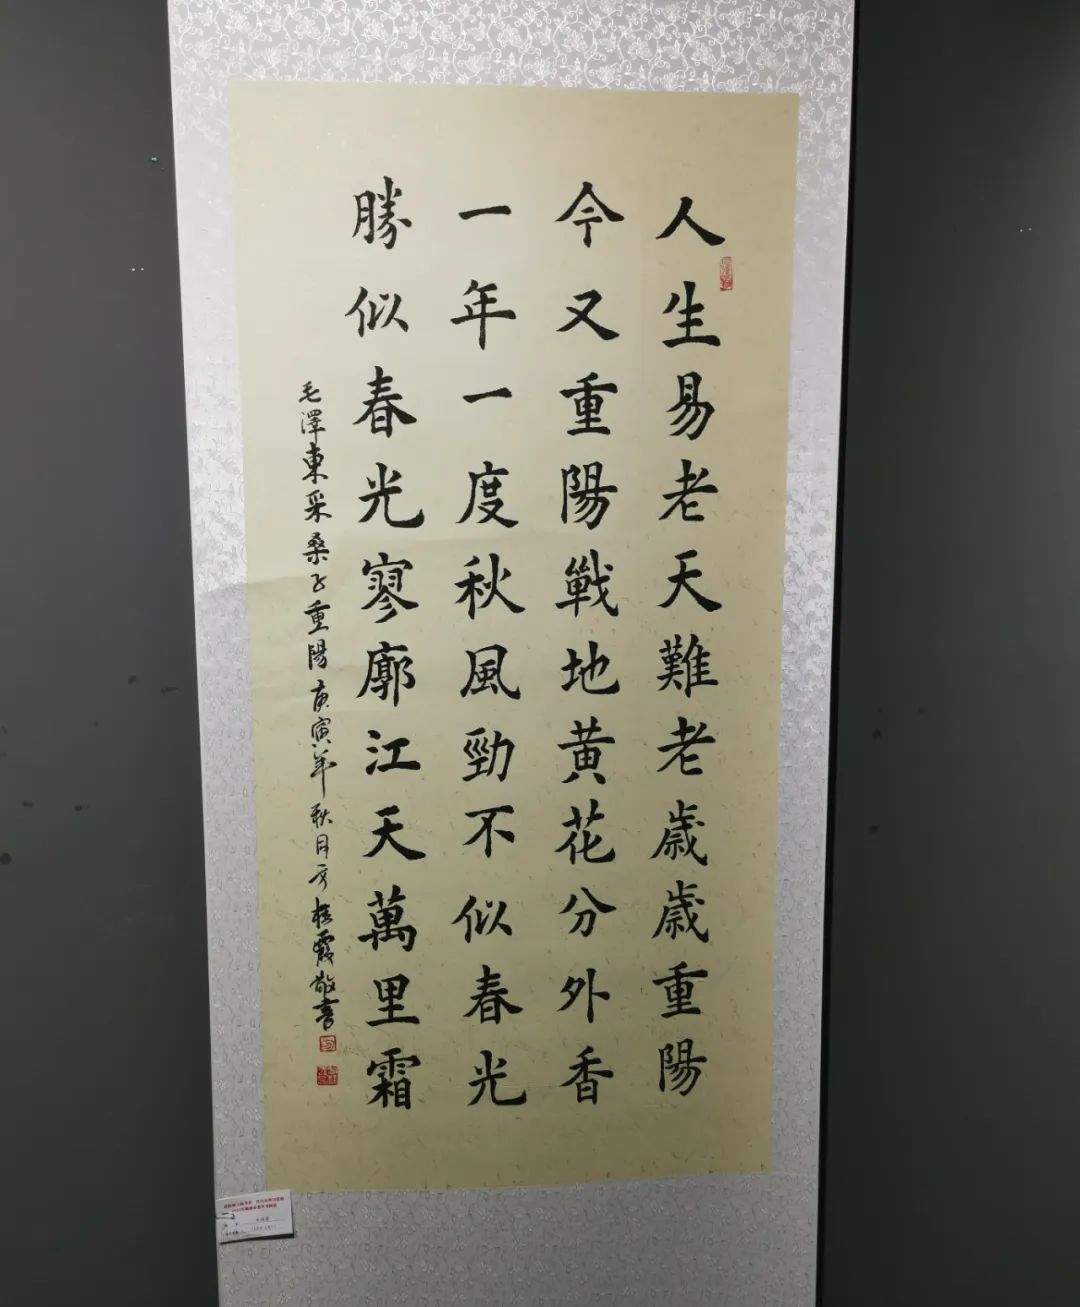 人生易老天難老歲歲重陽
今又重陽戰地黃花分外香
一年一度秋風勁不似春光
勝似春光寥廓江天萬里霜
毛澤東采桑子重陽庚寅年秋月於桂霞敬書